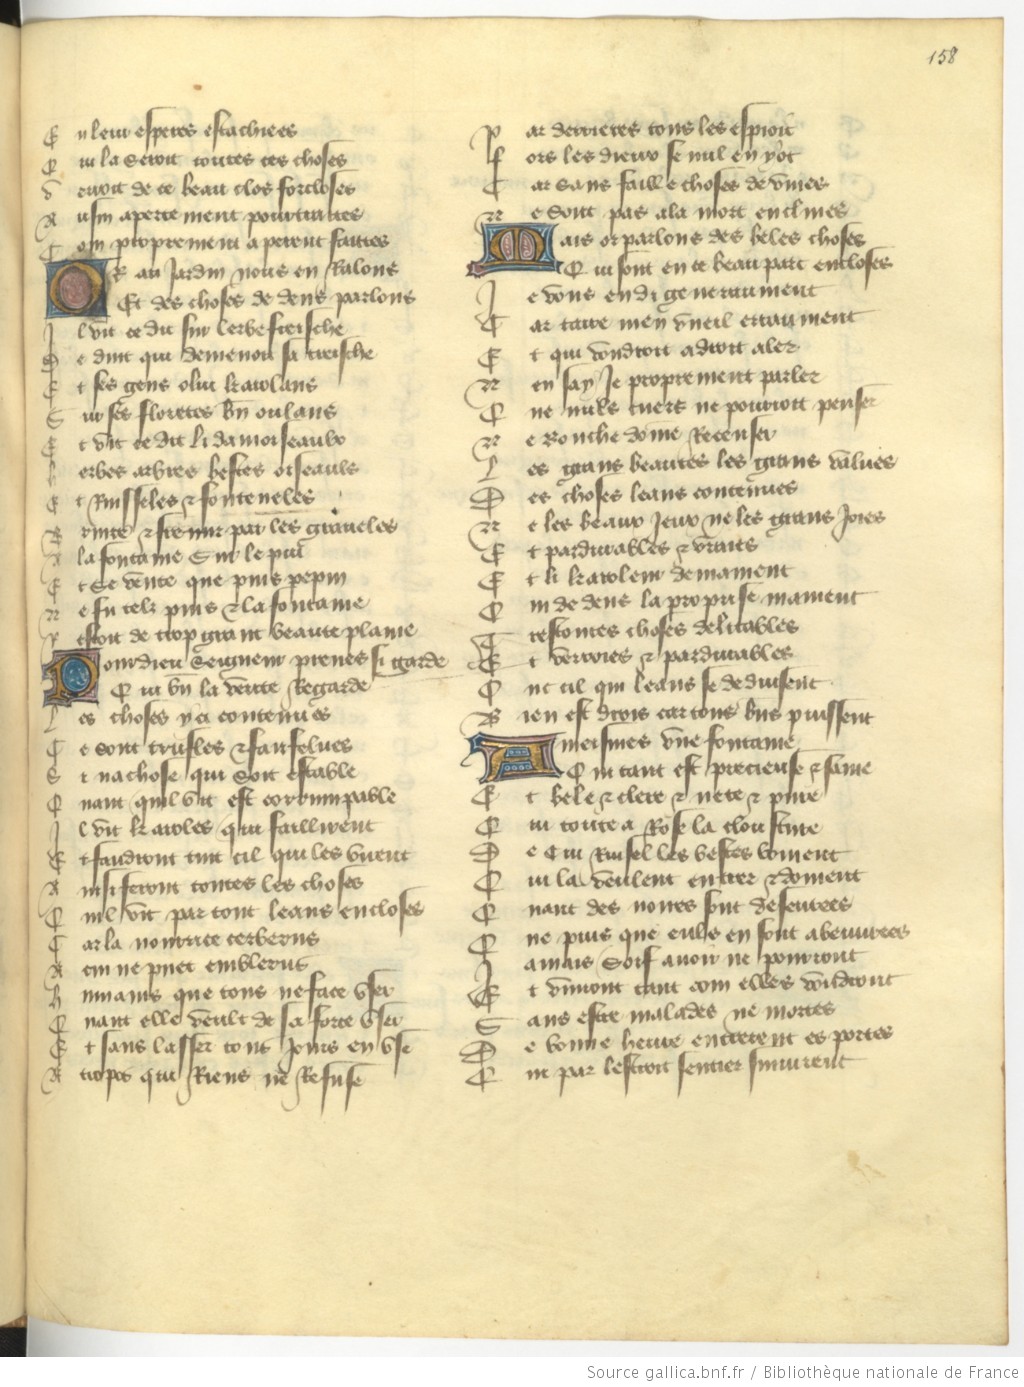 158
En leur especes estachiees
Qui la seroit toutes ces choses
Verroit de ce beau clos forcloses
Ausin apertement pourtraites
Com proprement aperent faittes
OR au Jardin nous en Ralons
Et des choses de dens parlons
Il vit ce dit sur lerbe freische
Deduit qui demenoit sa tresche
Et ses gens o lui karolans
Sur ses floretes bn oulans
Et vit ce dit li damoiseaulx
Lerbes arbres bestes oiseauls
Et Ruisseles & fonteneles
Bruire & fremir par les graveles
La fontaine Sur le pin
Et se vente que puis pepin
Ne fu telz pins & la fontaine
Restoit de trop grant beaute plaine
Pour dieu Seigneur prenes si garde
Qui bn la verite Regarde
Les choses yci contenues
Ce sont trufles & fanfelues
Si na chose qui soit estable
Quant quil vit est corrumpable
Il vit karoles qui faillirent
Et faudront tuit cil qui les virent
Ainsi feront toutes les choses
Quil vit par tout leans encloses
Car la nourrice cerberus
A cui ne puet emblerus
Humains que tous ne face user
Quant elle veult de sa force user
Et sans lasser tous Jours en use
Atropos qui Riens ne Refuse
Par derrieres tous les espioit
Fors les dieux se nul en y ot
Car sans faille choses devines
Ne sont pas a la mort enclines
Mais or parlons des beles choses
Qui sont en ce beau parc encloses
Je vous en di generaument
Car taire men vueil erraument
Et qui voudroit a droit aler
Nen say Je proprement parler
Que nuls cuers ne pourroit penser
Ne Bouche dome Recenser
Les grans beautes les grans values
Des choses leans contenues
Ne les beaux Jeux ne les grans Joies
Et pardurables & vraies
Et li karoleur demainent
Qui de dens la proprise mainent
Trestoutes choses delitables
Et verroies & pardurables
Ont cil qui leans se deduisent
Bien est drois car tous biens puissent
A meismes une fontaine
Qui tant est precieuse & saine
Et bele & clere & nete & pure
Qui toute a Rose la closture
De Cui Ruissel les bestes boivent
Qui la veulent entrer & doivent
Quant des noires sont desevrees
Que puis que eulls en sont abevurees
Jamais soif avoir ne pourront
Et vivront tant com elles voudront
Sans estre malades ne mortes
De bonne heure entrerent es portes
Qui par lestroit sentier suivirent
Source gallica.bnf.fr / Bibliothèque nationale de France